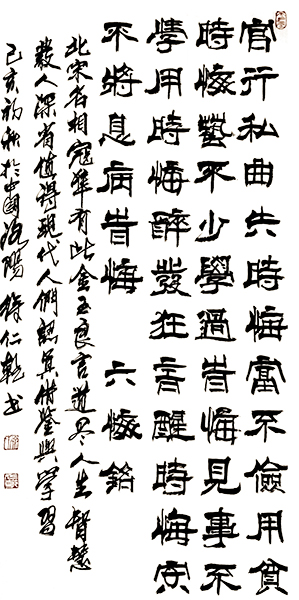 官行私曲失時悔富不儉用貧
時悔藝不少學過旹悔見事不
學用時悔醉發狂言醒時悔安
不將息病旹悔 六悔銘
北宋名相寇準有此金玉良言道尽人生智慧
教人深省值得現代人們認真借鑒與學習
己亥初秋於中國洛陽 徐仁乾书